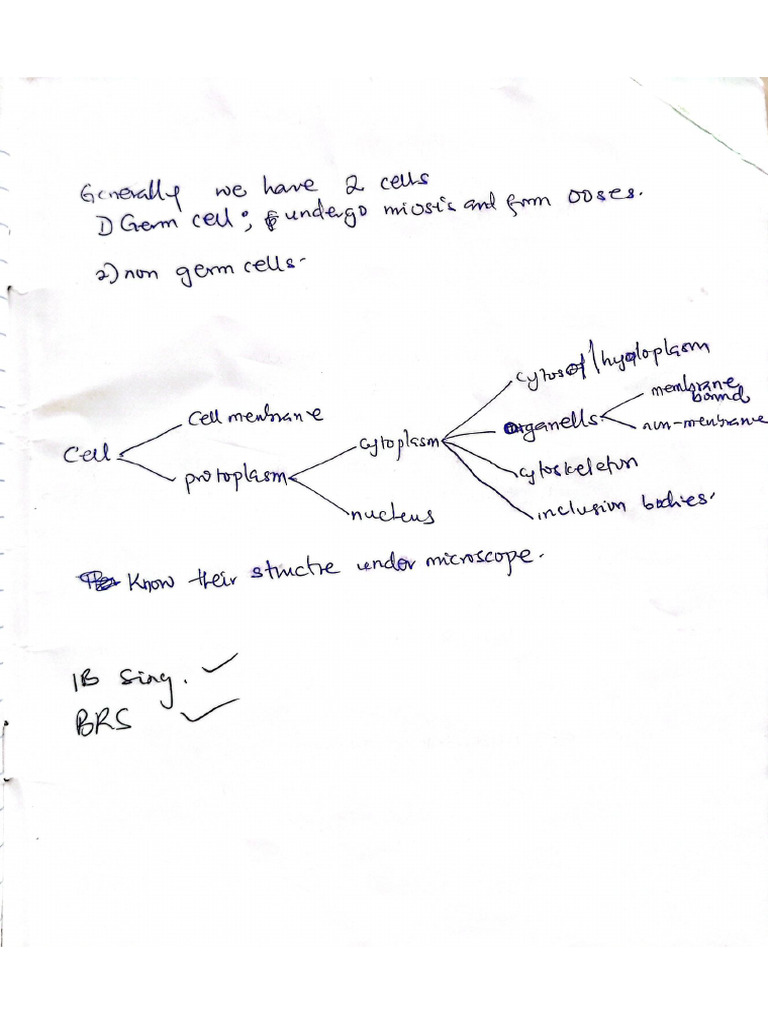 Generally we have 2 cells
1) Germ cell; undergo miosis and form ooses.
2) non germ cells.
cytosol / hyoloplasm
membrane bound
Cell membrane
organells
non-membrane
Cell
cytoplasm
protoplasm
cytoskeleton
nucleus
inclusion bodies.
Know their structre under microscope.
IB Sing.
BRS